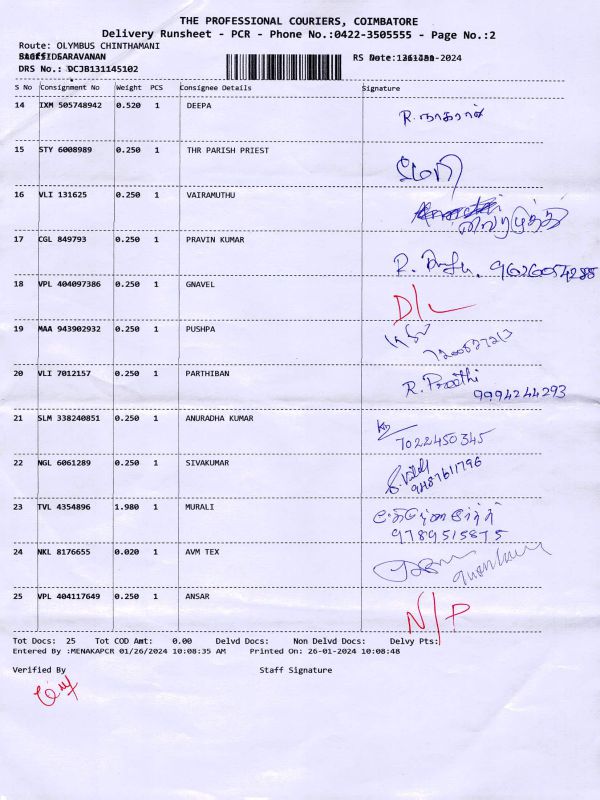 THE PROFESSIONAL COURIERS, COIMBATORE
Delivery Runsheet - PCR - Phone No.:0422-3505555 - Page No.:2
Route: OLYMBUS CHINTHAMANI
SARAVANAN RS
DRS No.: DCJB131145102
S No Consignment No Weight PCS Consignee Details Signature
14 IXM 505748942 0.520 1 DEEPA R. நாகராஜ்
15 STY 6008989 0.250 1 THR PARISH PRIEST
16 VLI 131625 0.250 1 VAIRAMUTHU வைரமுத்து
17 CGL 849793 0.250 1 PRAVIN KUMAR R. 9626054288
18 VPL 404097386 0.250 1 GNAVEL D/L
19 MAA 943902932 0.250 1 PUSHPA
20 VLI 7012157 0.250 1 PARTHIBAN R. Preethi
9994244293
21 SLM 338240851 0.250 1 ANURADHA KUMAR
7022450345
22 NGL 6061289 0.250 1 SIVAKUMAR
9487611796
23 TVL 4354896 1.980 1 MURALI
9789515875
24 NKL 8176655 0.020 1 AVM TEX
25 VPL 404117649 0.250 1 ANSAR N/P
Tot Docs: 25 Tot COD Amt: 0.00 Delvd Docs: Non Delvd Docs: Delvy Pts:
Entered By :MENAKAPCR 01/26/2024 10:08:35 AM Printed On: 26-01-2024 10:08:48
Verified By Staff Signature